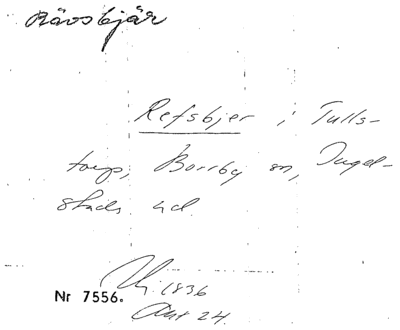 Rävsbjär
Refsbjer i Tulls-
torp, Borrby sn, Ingel-
stads hd.
1836
Nr 7556.
Akt 24